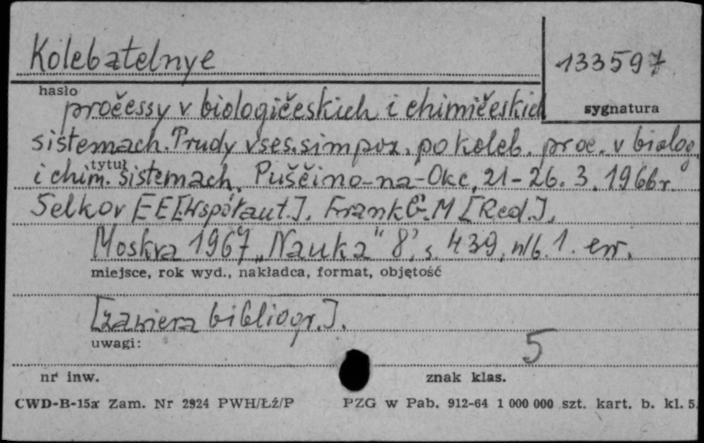 Kolebatelnye
133597
hasło
pročessy v biologičeskich i chimičeskich
sygnatura
sistemach. Trudy vses. simpoz. po koleb. proc. v biolog.
tytuł
i chim. sistemach, Puščino-na-Oke, 21-26. 3. 1966 r.
Selkov E E [Współaut.], Frank G. M [Red.],
Moskva 1967 „Nauka" 8°, s. 439, nlb. 1. err.
miejsce, rok wyd., nakładca, format, objętość
[zawiera bibliogr.].
uwagi:
5
nr inw.
znak klas.
CWD-B-15a Zam. Nr 2924 PWH/Łź/P PZG w Pab. 912-64 1 000 000 szt. kart. b. kl. 5.